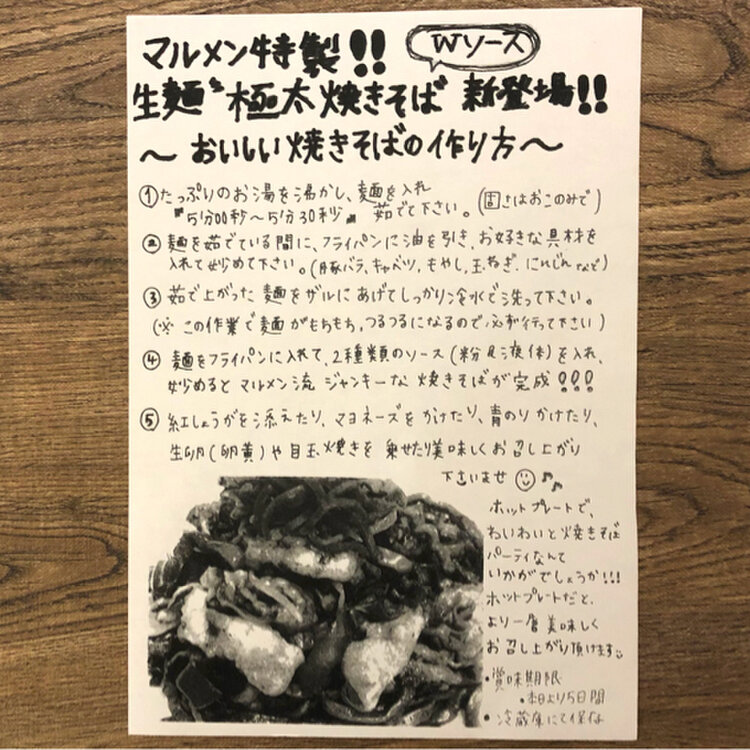 マルメン特製!! Wソース
生麺〝極太焼きそば 新登場!!
〜おいしい焼きそばの作り方〜
①たっぷりのお湯を沸かし、麺を入れ
〝5分00秒〜5分30秒〟茹でて下さい。(固さはおこのみで)
②麺を茹でている間に、フライパンに油を引き、お好きな具材を
入れて炒めて下さい。(豚バラ、キャベツ、もやし、玉ねぎ、にんじんなど)
③茹で上がった麺をザルにあげてしっかり冷水で洗って下さい。
(※この作業で麺がもちもち,つるつるになるので必ず行って下さい)
④麺をフライパンに入れて、2種類のソース(粉&液体)を入れ、
炒めるとマルメン流ジャンキーな焼きそばが完成!!!
⑤紅しょうがを添えたり、マヨネーズをかけたり、青のりかけたり、
生卵(卵黄)や目玉焼きを乗せたり美味しくお召し上がり
下さいませ☺♪♪
ホットプレートで、
わいわいと焼きそば
パーティなんて
いかがでしょうか!!!
ホットプレートだと、
より一層美味しく
お召し上がり頂けます
・賞味期限
・本日より5日間
・冷蔵庫にて保存